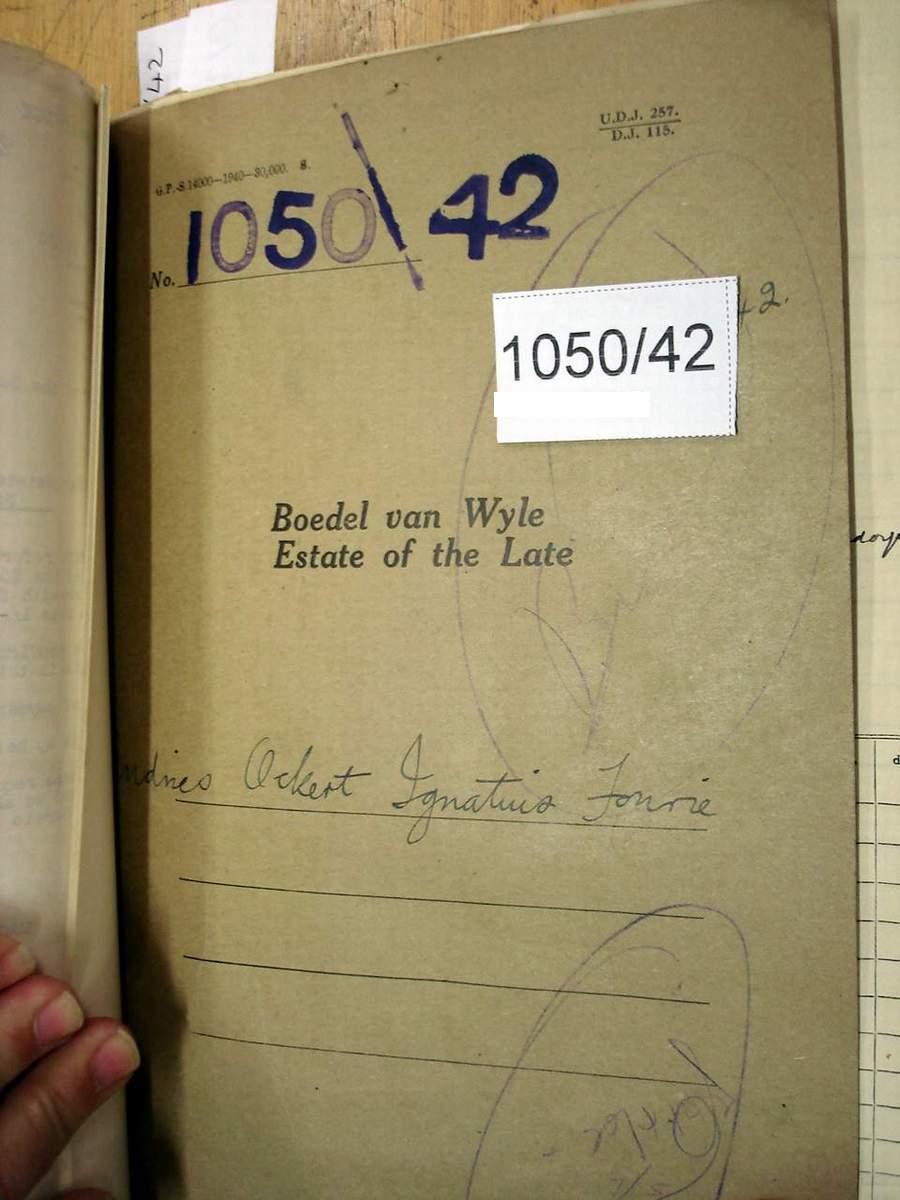 42
U.D.J. 257.
D.J. 115.
G.P.-S.14000—1940—30,000. S.
No. 1050\42
42.
1050/42
Boedel van Wyle
Estate of the Late
ndries Ockert Ignatius Fourie